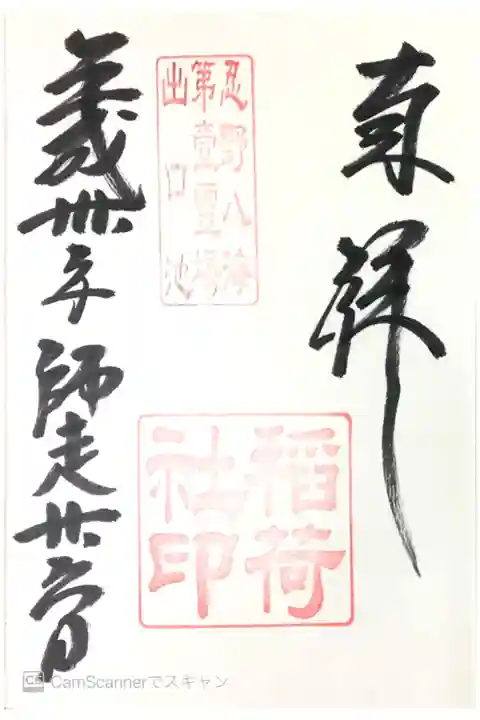 奉拝
忍野八海
第壹霊場
出口池
稲荷
社印
平成卅年師走廿六日
CS CamScannerでスキャン